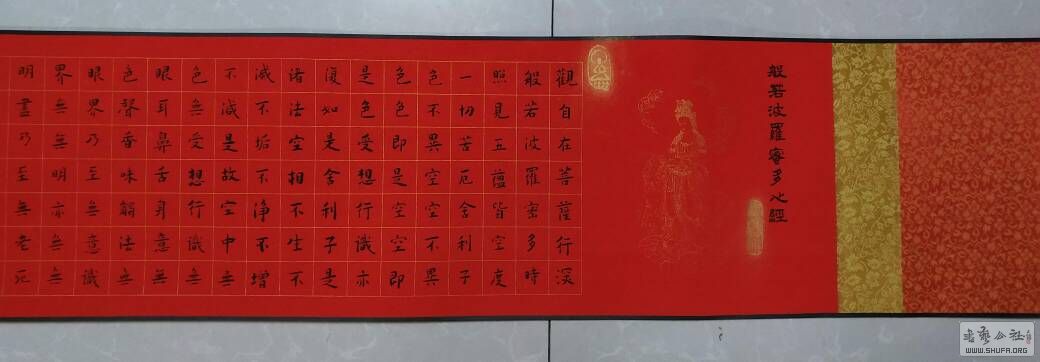 般若波羅蜜多心經
觀自在菩薩行深
般若波羅蜜多時
照見五蘊皆空度
一切苦厄舍利子
色不異空空不異
色色即是空空即
是色受想行識亦
復如是舍利子是
諸法空相不生不
滅不垢不淨不增
不減是故空中無
色無受想行識無
眼耳鼻舌身意無
色聲香味觸法無
眼界乃至無意識
界無無明亦無無
明盡乃至無老死
書藝公社
WWW.SHUFA.ORG